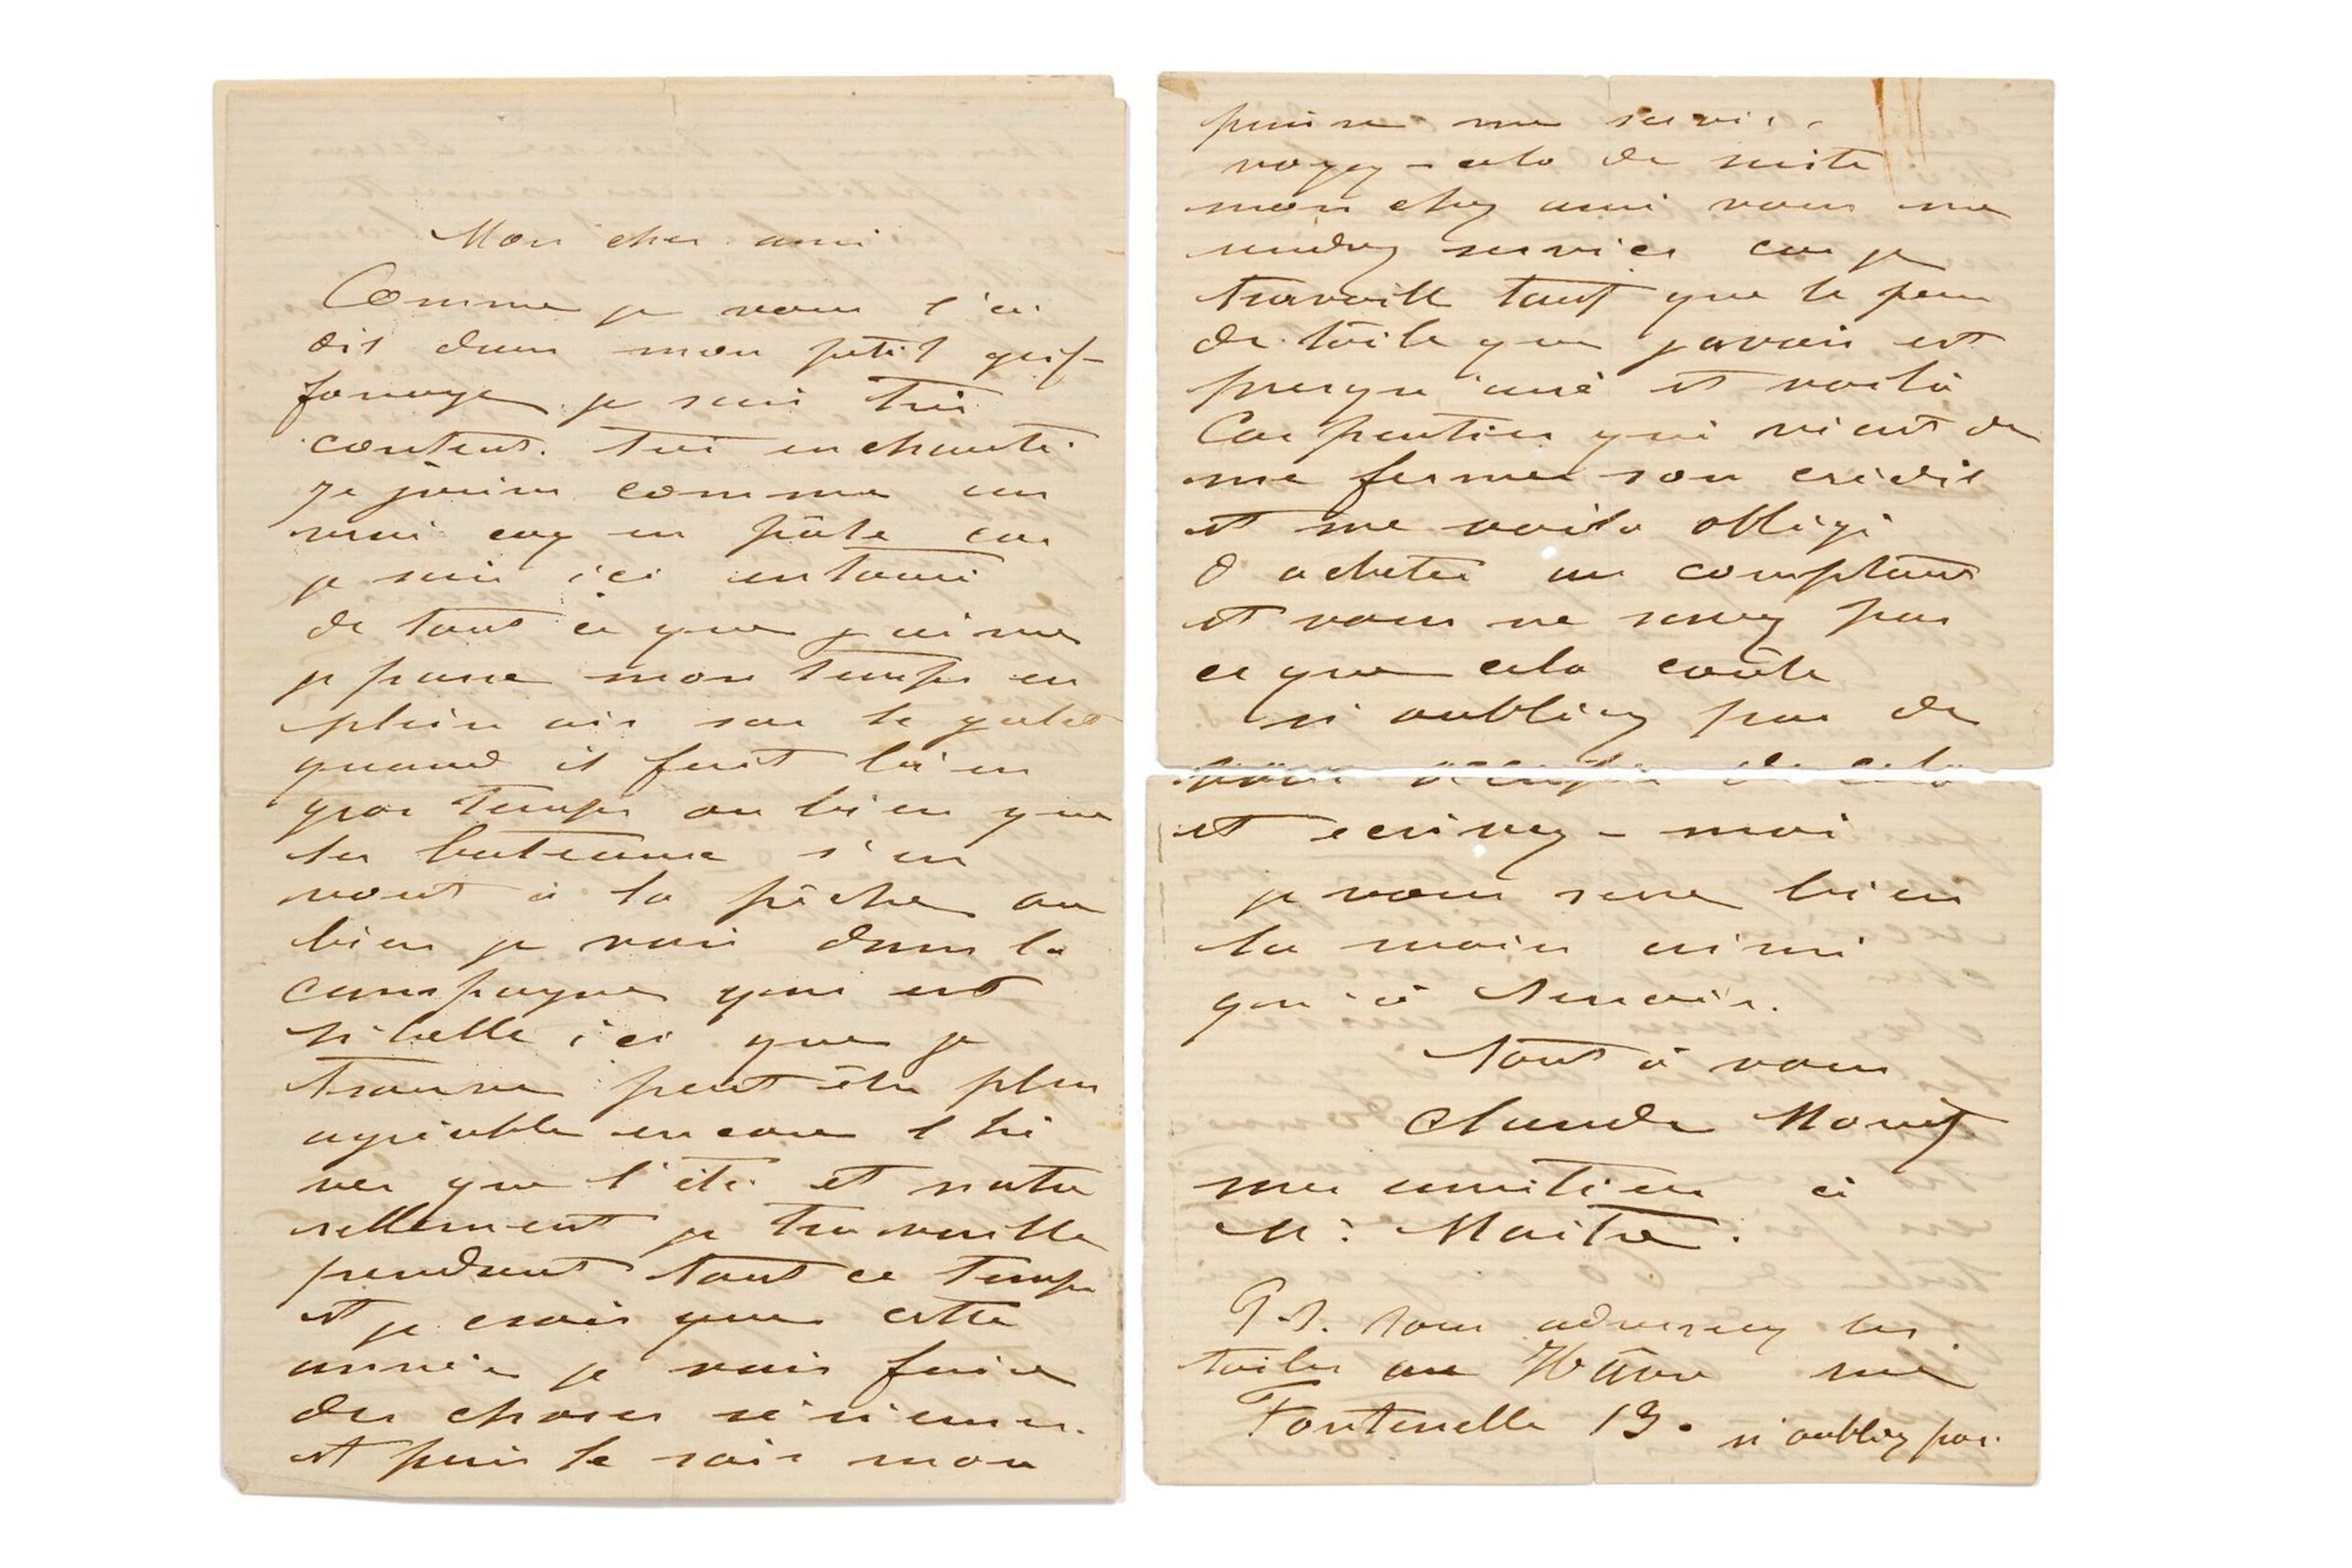 Mon cher ami
Comme je vous l'ai
dit dans mon petit grif-
fonage je suis très
content. très enchanté.
Je suis comme un
vrai coq en pâte car
je suis ici entouré
de tout ce que j'aime
je passe mon temps en
plein air sur le galet
quand il fait bien
gros temps ou bien que
les bateaux s'en
vont à la pêche ou
bien je vais dans la
campagne qui est
si belle ici que je
trouve peut être plus
agréable encore l'hi
ver que l'été et natu
rellement je travaille
pendant tout ce temps
et je crois que cette
année je vais faire
des choses sérieuses.
et puis le soir mon
puisse me servir.
voyez-cela de suite
mon cher ami vous me
rendrez service car je
travaille tant que le peu
de toile que j'avais est
presqu'usé et voilà
Carpentier qui vient de
me fermer son crédit
et me voila obligé
d'acheter au comptant
et vous ne savez pas
ce que cela coûte
n'oubliez pas de
vous occuper de cela
et ecrivez-moi
je vous serre bien
la main ainsi
qu'à Renoir.
Tout à vous
Claude Monet
mes amitiées à
M: Maitre.
P.S. Vous adresserez les
toiles au Havre rue
Fontenelle 13. n'oubliez pas.